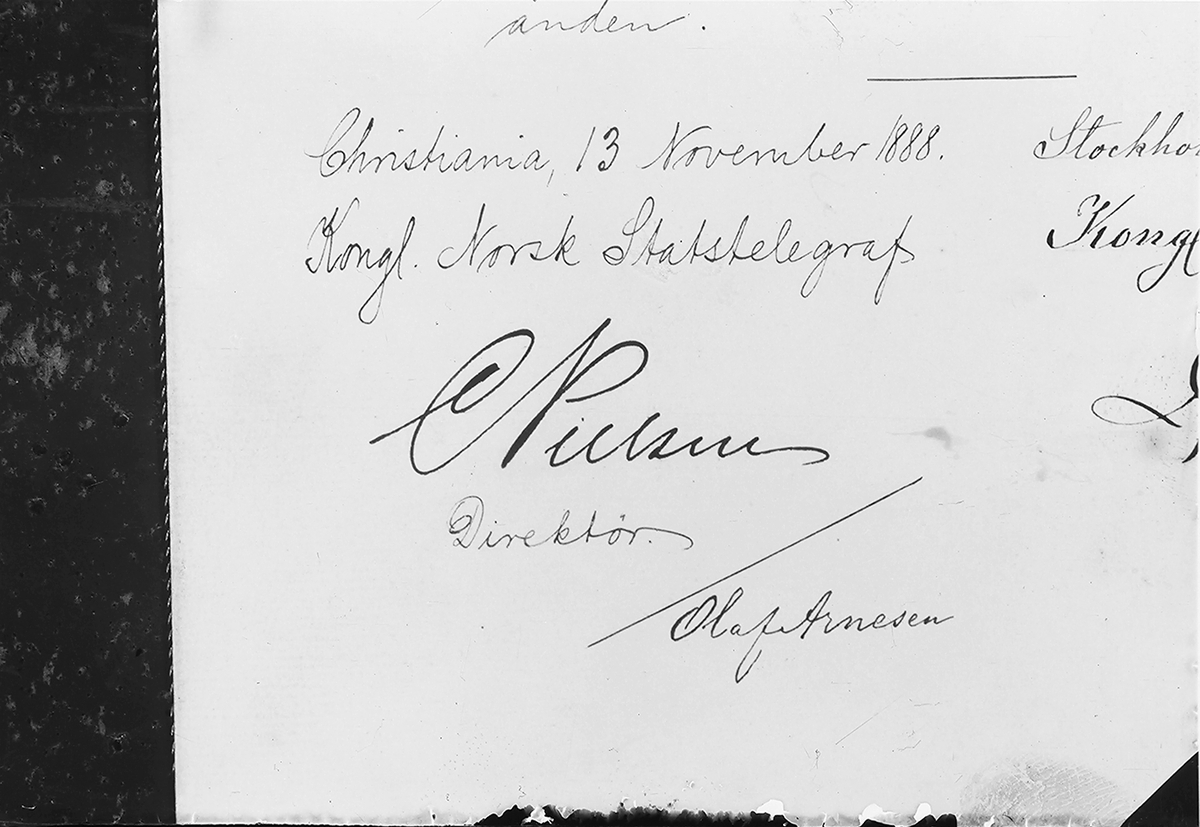 anden.
Christiania, 13 November 1888.
Kongl. Norsk Statstelegraf
CNielsen
Direktör.
Olaf Arnesen
Stockho
Kongl